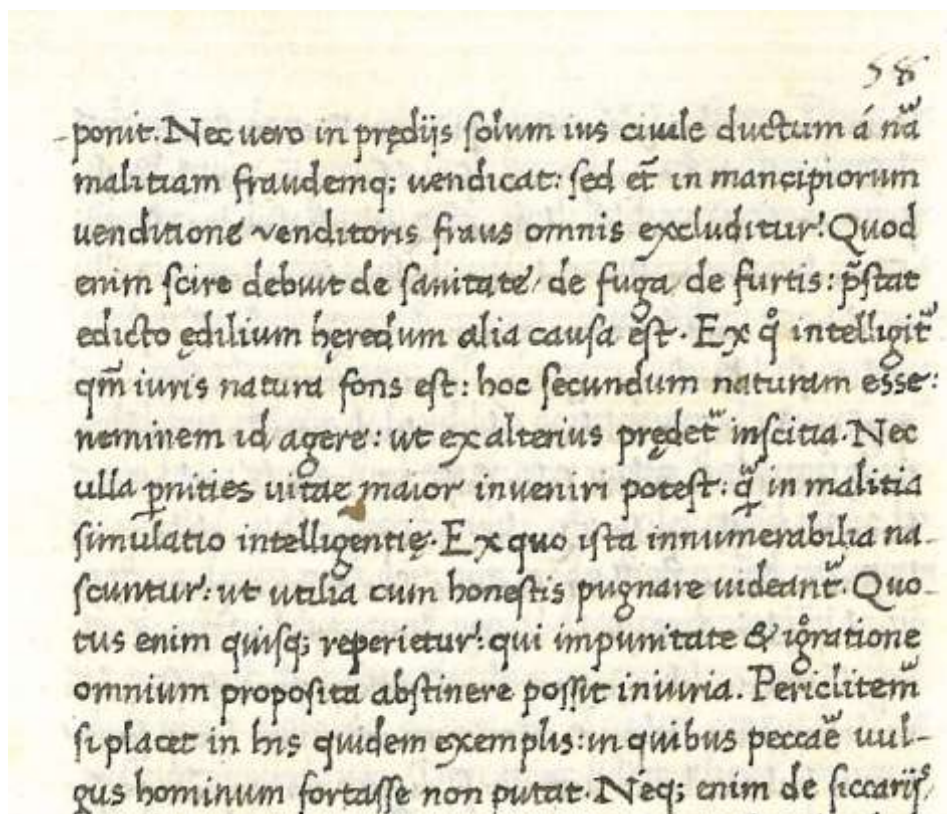 58
ponit. Nec uero in prędijs solum ius ciuile ductum á nã
malitiam fraudemq; uendicat: sed et̃ in mancipiorum
uenditione venditoris fraus omnis excluditur: Quod
enim scire debuit de sanitate, de fuga, de furtis: p̃stat
edicto ędilium hęredum alia causa est. Ex q̊ intelligit᷑
qm̃ iuris natura fons est: hoc secundum naturam esse:
neminem id agere: ut ex alterius prędet᷑ inscitia. Nec
ulla ꝑnities uitae maior inveniri potest: q̃ in malitia
simulatio intelligentię. Ex quo ista innumerabilia na-
scuntur: ut utilia cum honestis pugnare uideant᷑. Quo-
tus enim quisq; reperietur: qui impunitate & ig̊ratione
omnium proposita abstinere possit iniuria. Periclitem᷑
si placet in his quidem exemplis: in quibus peccae᷑ uul-
gus hominum fortasse non putat. Neq; enim de siccarijs,